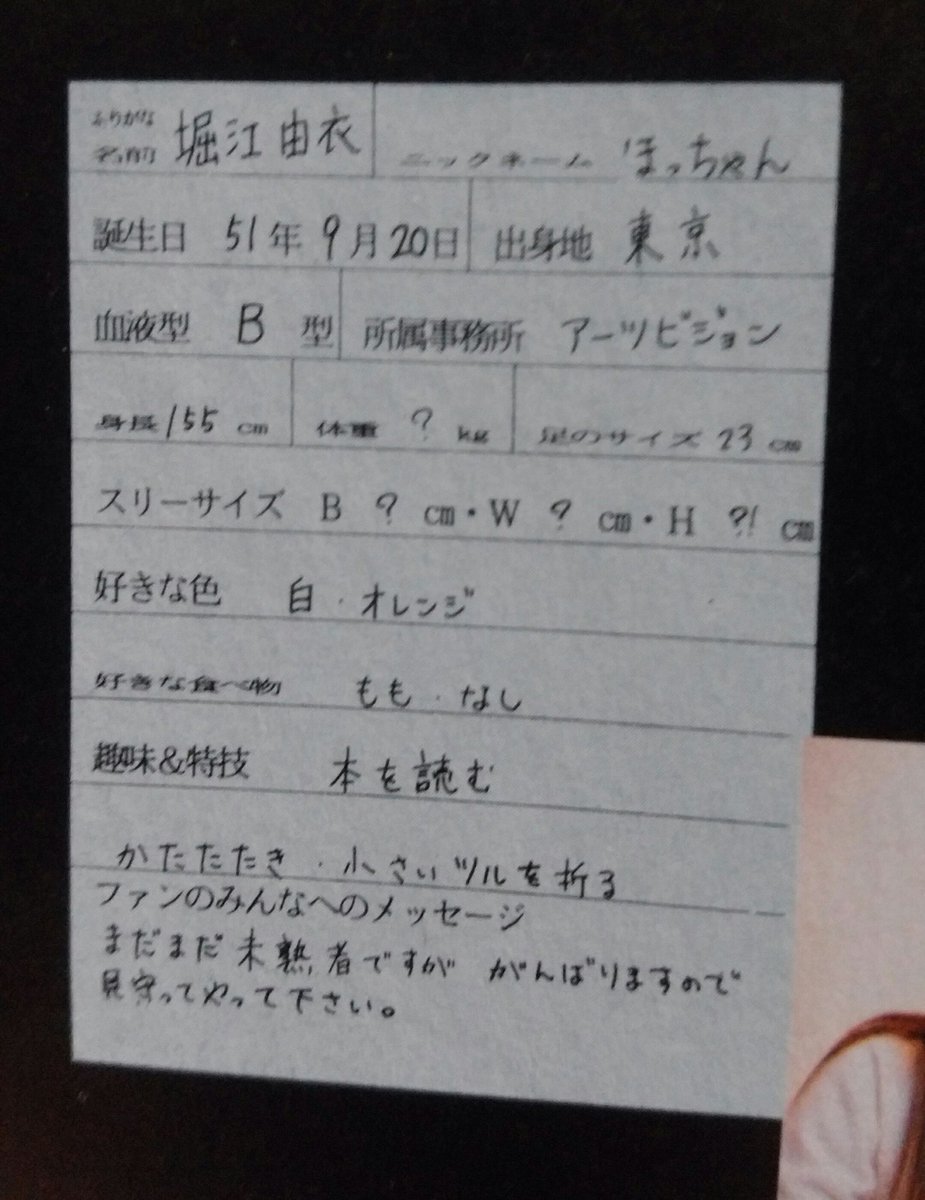 ふりがな
名前 堀江由衣 ニックネーム ほっちゃん
誕生日 51年 9月 20日 出身地 東京
血液型 B 型 所属事務所 アーツビジョン
身長 155 cm 体重 ? kg 足のサイズ 23 cm
スリーサイズ B ? cm・W ? cm・H ?! cm
好きな色 白・オレンジ
好きな食べ物 もも・なし
趣味&特技 本を読む
かたたたき・小さいツルを折る
ファンのみんなへのメッセージ
まだまだ未熟者ですが がんばりますので
見守ってやって下さい。